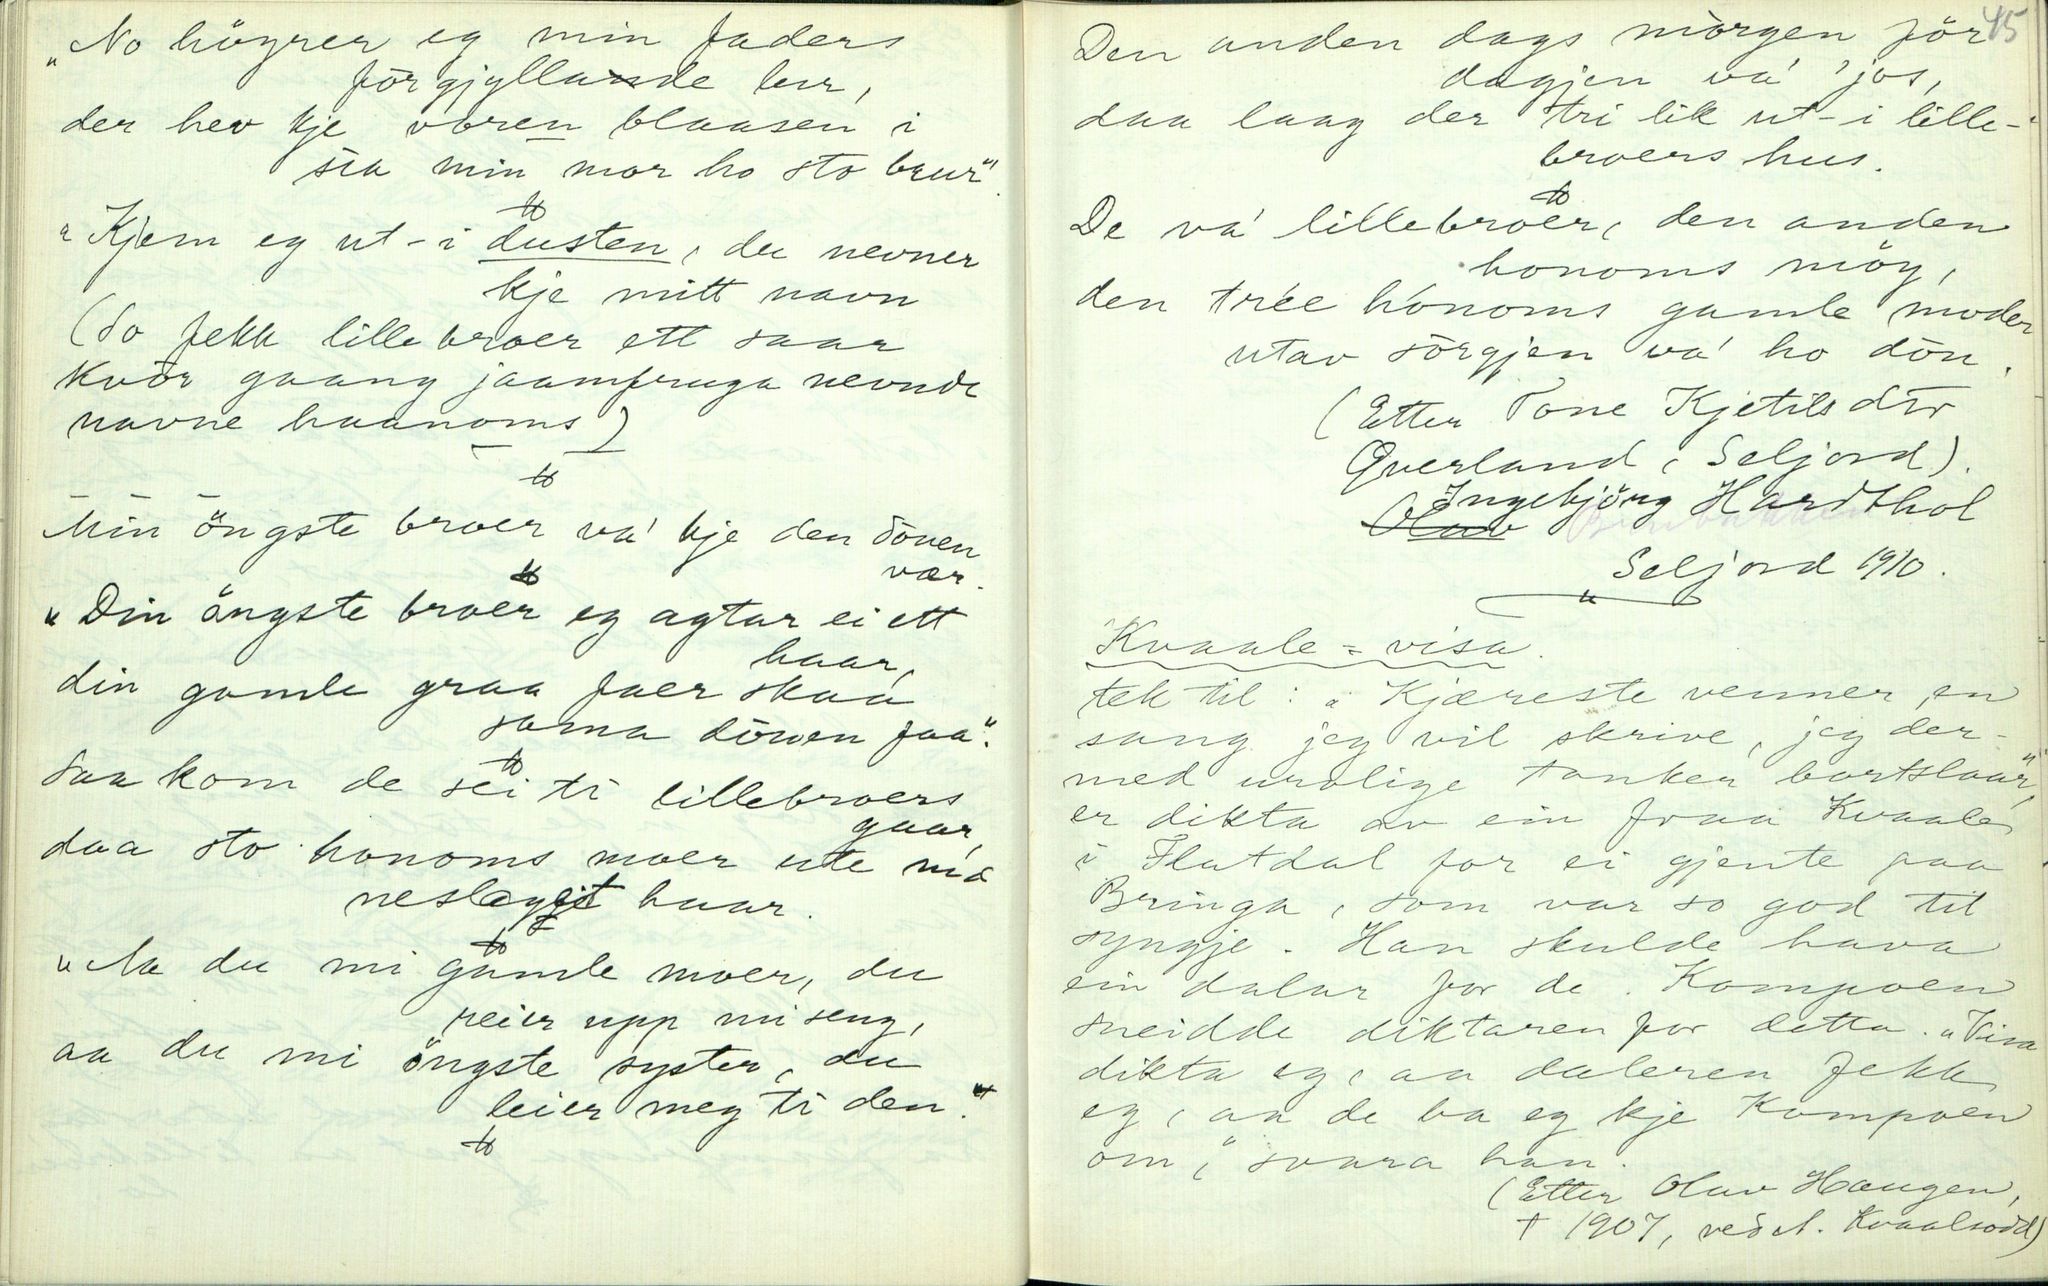 „No höyrer eg min faders
förgjyllande lur,
der hev kje voren blaasen i
sia min mor ho sto brur"
„Kjem eg ut-i dusten, du nevner
kje mitt navn
(So fekk lillebroer ett saar
Kvör gaang jaamfruga nevnde
navne haanoms)
Min öngste broer va' kje den döuen
vær.
„Din öngste broer eg agtar ei ett
haar,
din gamle graa faer skaa
sama döuen faa".
Saa kom de sei ti lillebroers
gaar,
daa sto honoms moer ute má
neslagjit haar.
„Aa du mi gamle moer, du
reier upp mi seng,
aa du mi öngste syster, du
leier meg ti den."
45
Den anden dags mòrgenför
dagjen va' 'jos,
daa laag der tri lik ut-i lille-
broers hus.
De va' lillebroer, den anden
honoms möy,
den trée hónoms gamle moder
utav sörgjen va' ho döu.
(Etter Tone Kjetilsdtr
Qverland, Seljord).
Ingebjörg Hardthol
Olav
Seljord 1910.
Kvaale-visa.
tek til: „Kjæreste venner, en
sang jeg vil skrive, jeg der-
med urolige tanker bortslaar",
er dikta av ein fraa Kvaale
i Flatdal for ei gjente paa
Bringa, som var so god til
syngje. Han skulde hava
ein dalar for de. Kompoen
sneidde diktaren for detta. „Visa
dikta eg, aa daleren fekk
eg, aa de ba eg kje Kompoen
om," svara han.
(Etter Olav Haugen,
† 1907, ved A. Kvaalsodd)